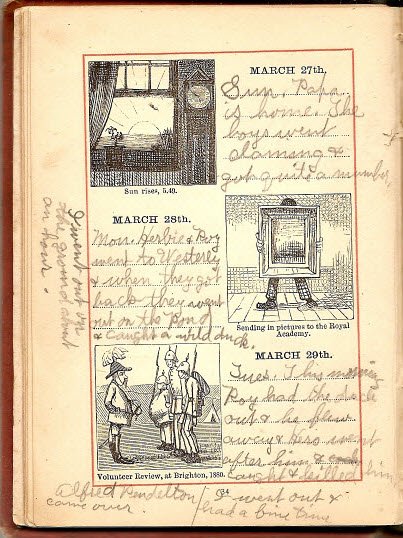 MARCH 27th.
Sun. Papa
is home. The
boys went
clamming &
got quite a number,
Sun rises, 5.49.
MARCH 28th.
Mon. Herbie & Roy
went to Westerly
& when they got
back they went
out on the Pond
& caught a wild duck.
Sending in pictures to the Royal
Academy.
MARCH 29th.
Tues. This morning
Roy had the duck
out & he flew
away & Hero went
after him &
caught & killed him
Volunteer Review, at Brighton, 1880.
Alfred Pendelton
came over.
I went out &
had a fine time
I went out on
the pond about
an hour.